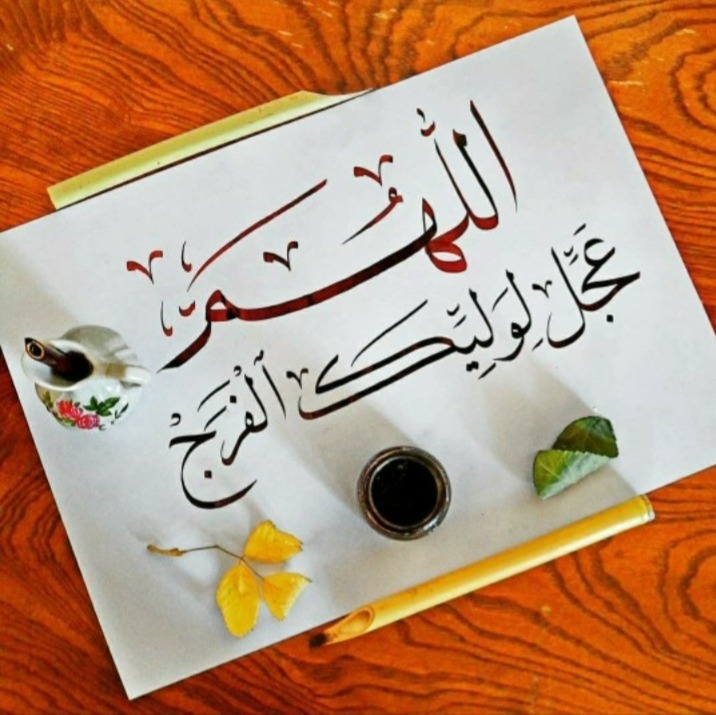 اللّٰهُمَّ
عَجِّل لِوَلِيِّكَ ٱلْفَرَجْ